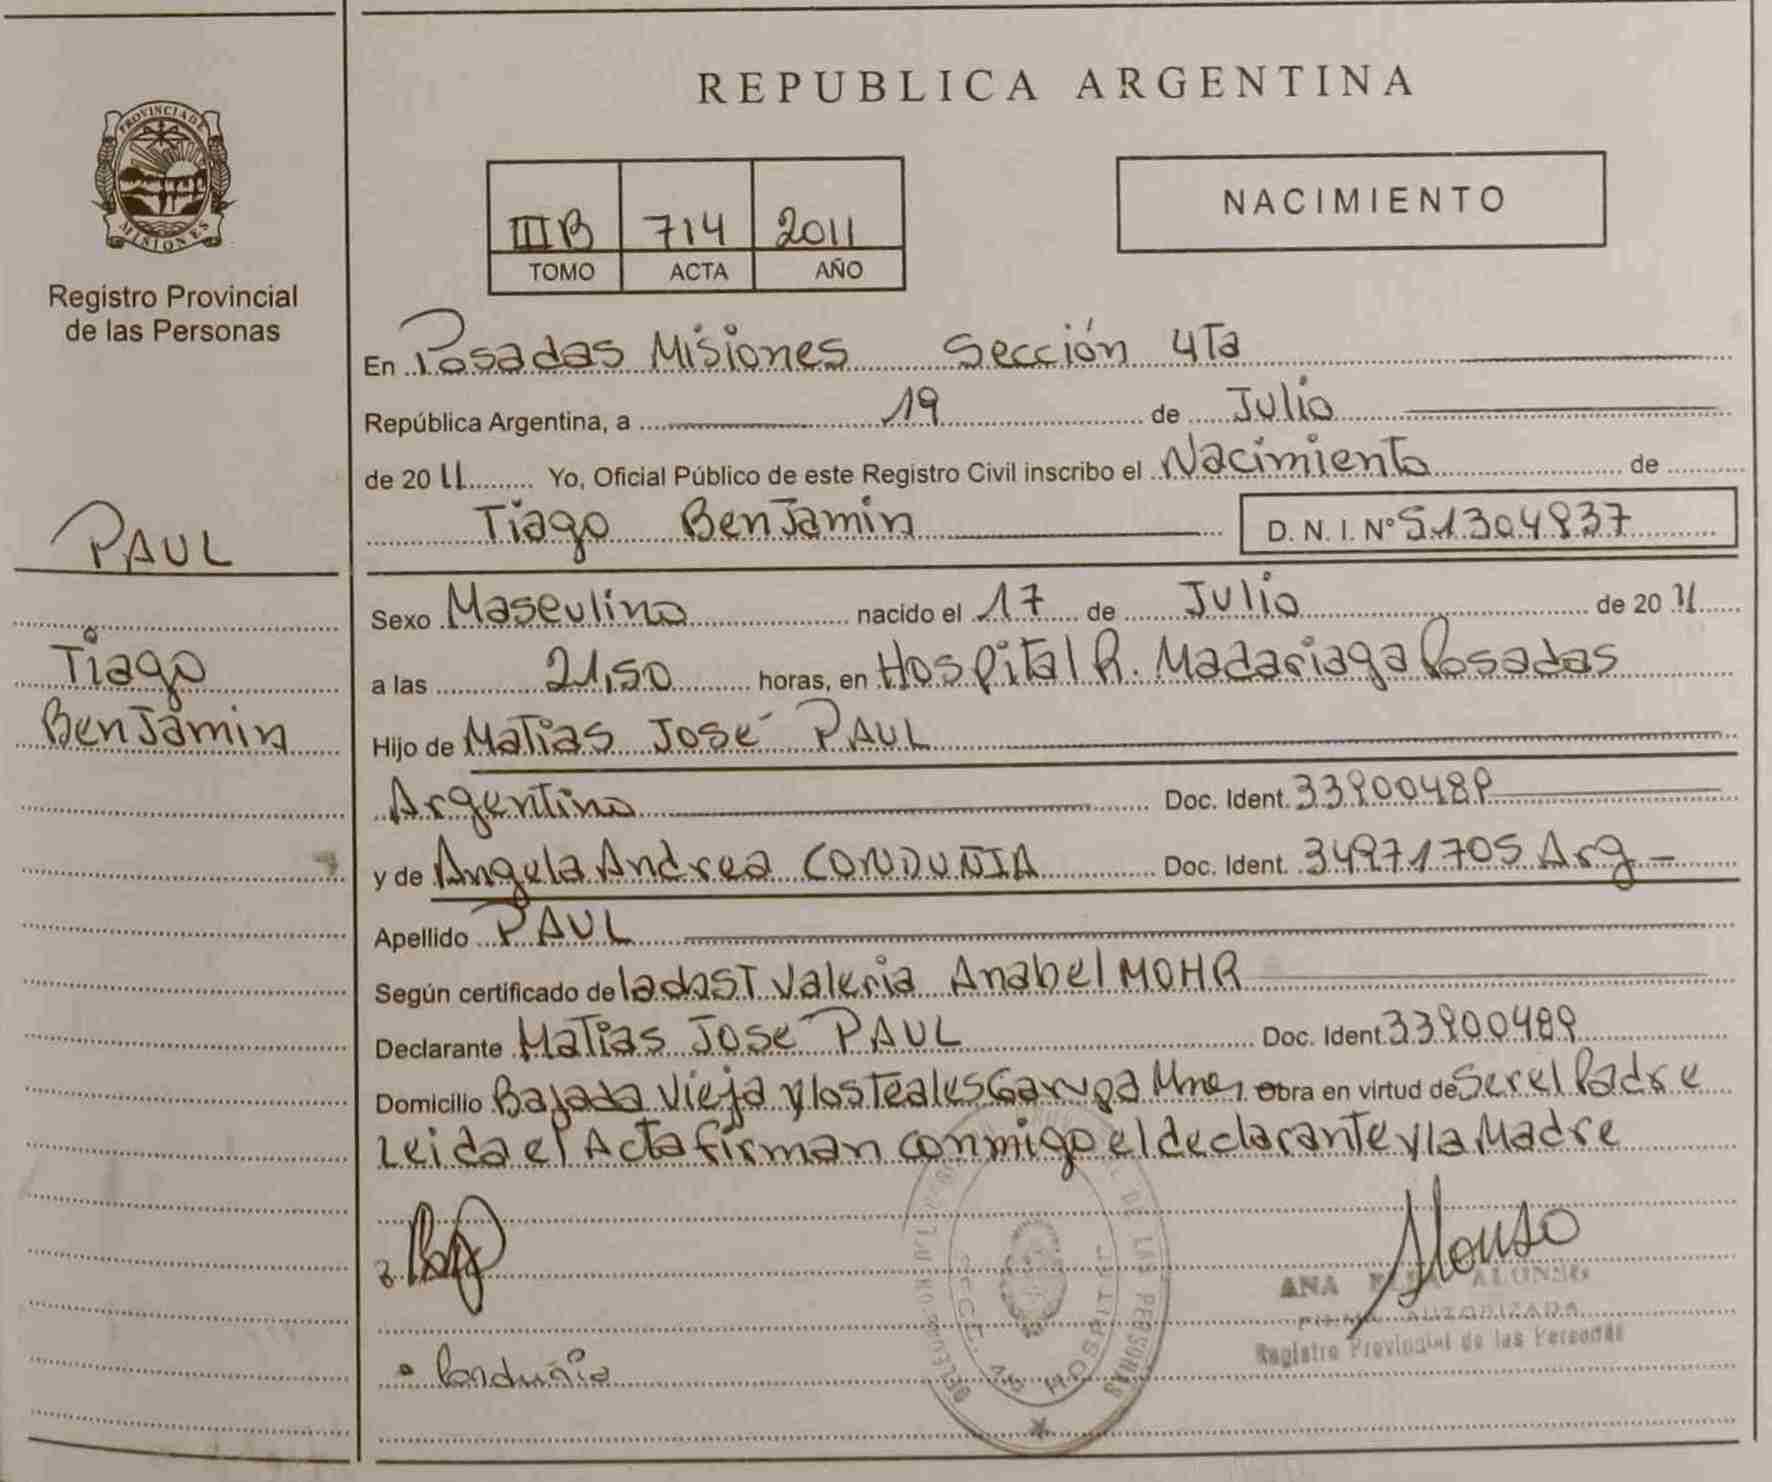 PROVINCIA DE
MISIONES
Registro Provincial
de las Personas
PAUL
Tiago
BenJamin
REPUBLICA ARGENTINA
IIIB 714 2011
TOMO ACTA AÑO
NACIMIENTO
En Posadas Misiones Sección 4Ta
República Argentina, a 19 de Julio
de 2011 Yo, Oficial Público de este Registro Civil inscribo el Nacimiento de
Tiago BenJamin D. N. I. Nº 51304937
Sexo Masculino nacido el 17 de Julio de 2011
a las 21,50 horas, en Hospital R. Madariaga Posadas
Hijo de Matias José PAUL
Argentino Doc. Ident. 33900489
y de Angela Andrea CONDUÑIA Doc. Ident. 34971705 Arg -
Apellido PAUL
Según certificado de ladosT Valeria Anabel MOHR
Declarante Matias Jose PAUL Doc. Ident. 33900489
Domicilio Bajada Vieja y los Teales Garupa Mnes, obra en virtud de Ser el Padre
Leida el Acta firman conmigo el declarante y la Madre
Alonso
ANA ALONSO
FIRMA AUTORIZADA
Registro Provincial de las Personas
Conduñia
DE LAS PERSONAS
SECC. 4ta HOSPITAL